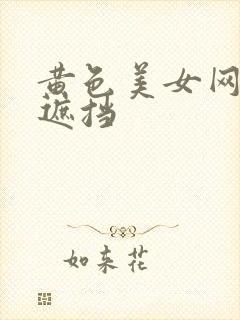 黄色美女网
遮挡
如来花